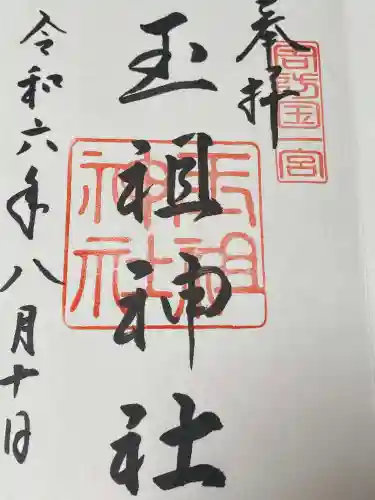 奉拝
周防国一宮
玉祖神社
玉祖神社
令和六年八月十日